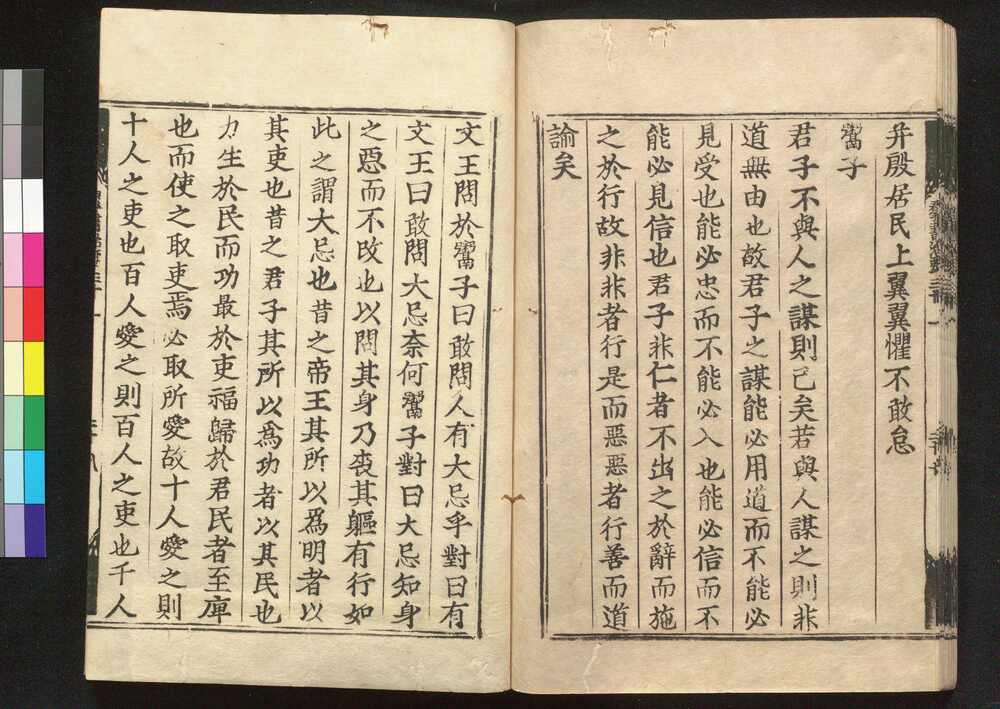 并殷居民上翼翼懼不敢怠
鬻子
君子不與人之謀則已矣若與人謀之則非
道無由也故君子之謀能必用道而不能必
見受也能必忠而不能必入也能必信而不
能必見信也君子非仁者不出之於辭而施
之於行故非非者行是而惡惡者行善而道
諭矣
文王問於鬻子曰敢問人有大忌乎對曰有
文王曰敢問大忌奈何鬻子對曰大忌知身
之惡而不改也以問其身乃喪其軀有行如
此之謂大忌也昔之帝王其所以爲明者以
其吏也昔之君子其所以爲功者以其民也
力生於民而功最於吏福歸於君民者至庳
也而使之取吏焉必取所愛故十人愛之則
十人之吏也百人愛之則百人之吏也千人